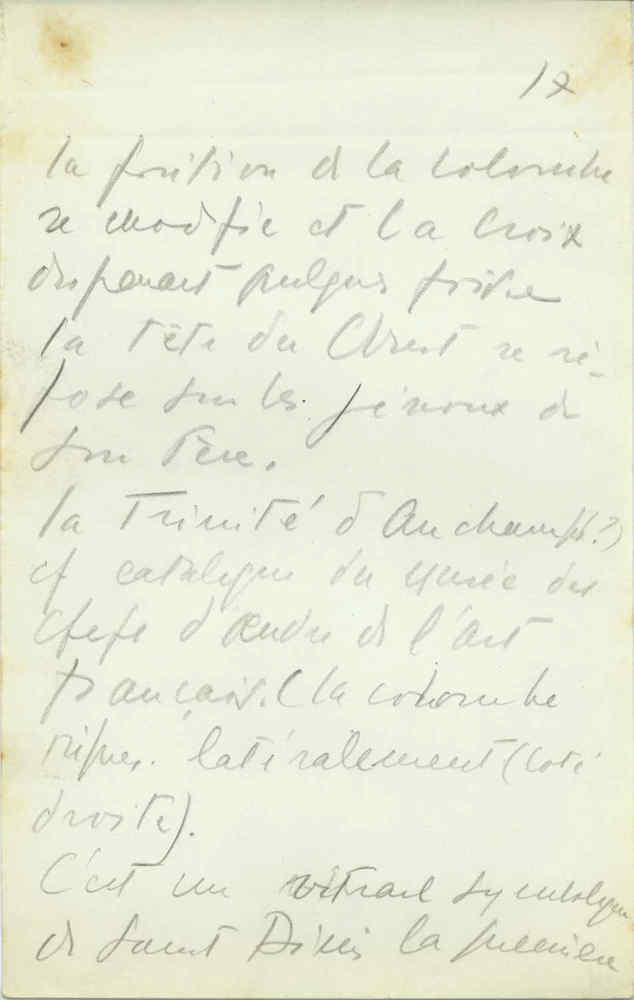 17
la position de la colombe
se modifie et la Croix
disparait quelques fois
la Tête du Christ se re-
pose sur les genoux de
son Père.
la Trinité d'Auchamps(?)
cf catalogue du Musée des
chefs d'œuvre de l'art
français. (la colombe
latéralement (coté
droite).
C'est un vitrail symbolique
de Saint Dénis la première